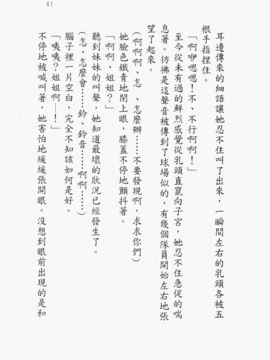 耳邊傳來的細語讓她忍不住叫了出來，一瞬間左右的乳頭各被五
根手指捏住。
「啊咿嗯嗯！不、不行啊啊！」
至今從未有過的鮮烈感覺從乳頭直竄向子宮，她忍不住急促的喘
息著。彷彿是這聲音被傳到了球場似的，有幾個隊員開始左右地張
望了起來。
（啊啊啊、怎、怎麼辦……不要發現啊，求求你們）
她臉色鐵青地閉上眼，膝蓋不停地顫抖著。
「啊啊、姐姐？」
聽到妹妹的叫聲，她知道最壞的狀況已經發生了。
（怎、怎麼會……鈴、鈴音……啊啊……）
腦子裡一片空白，完全不知該如何是好。
「咦咦？姐姐啊—！」
不停地被喊叫著，她害怕地緩緩張開眼。沒想到眼前出現的是和
41